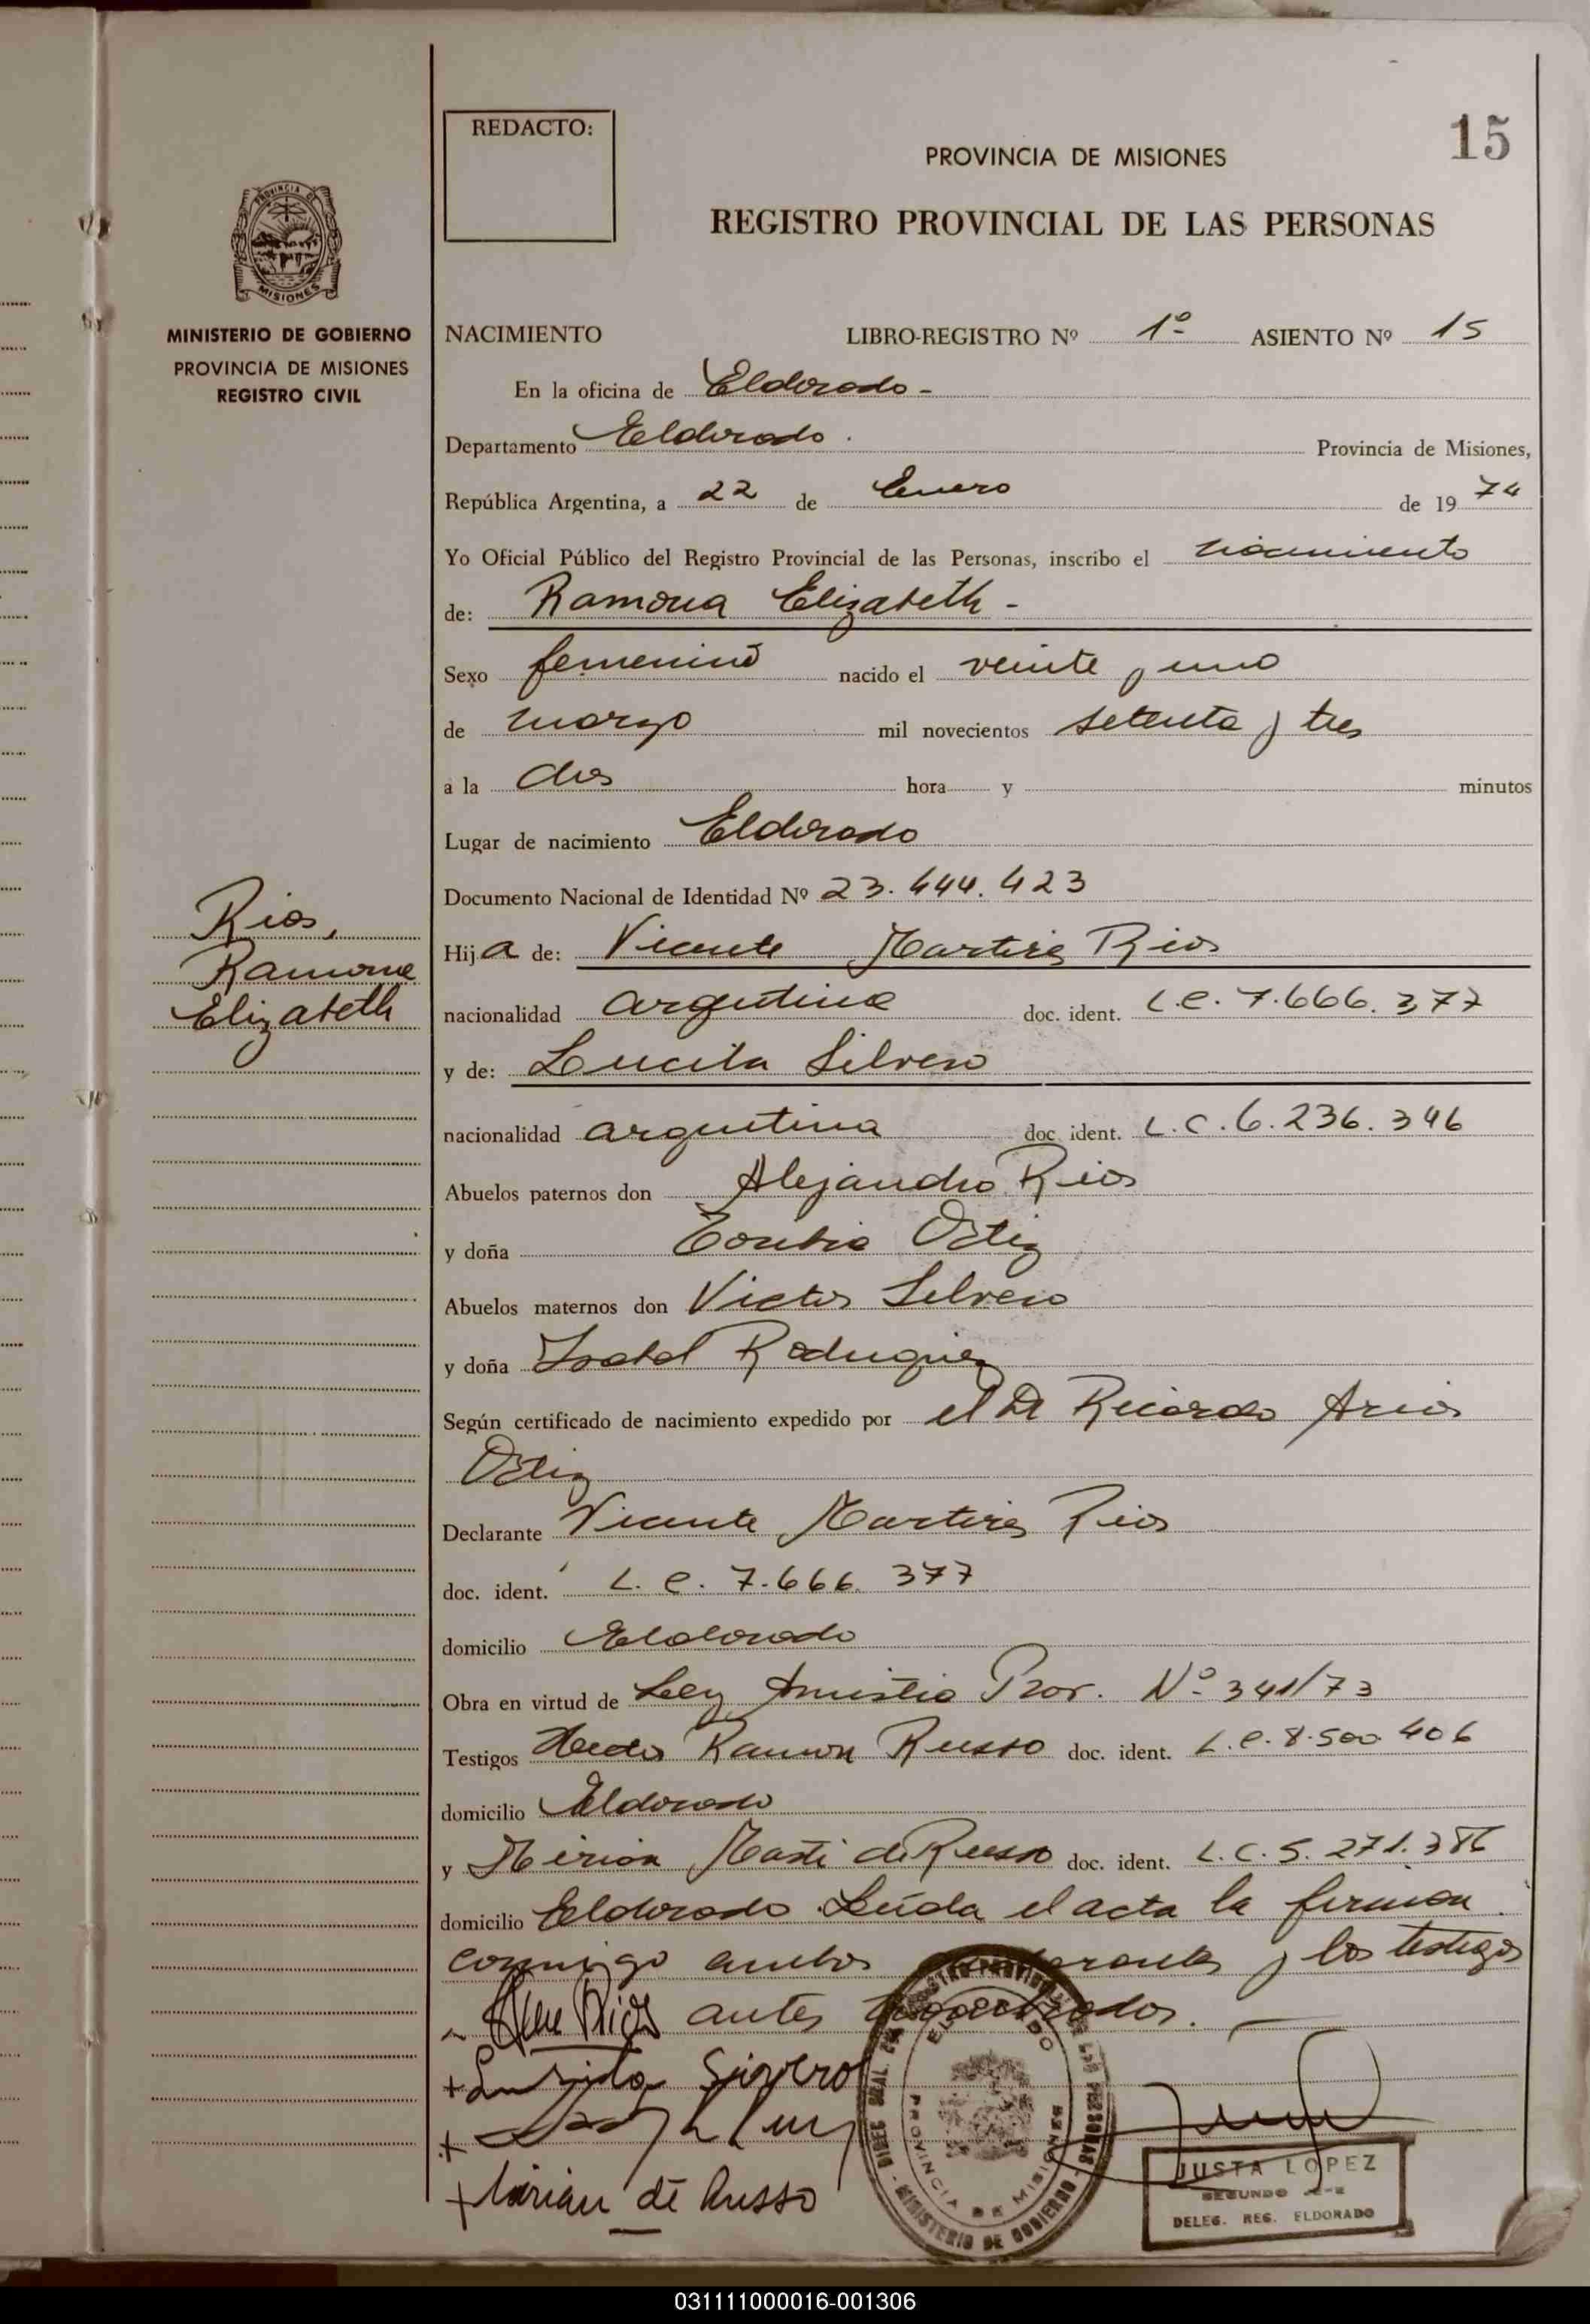 REDACTO:
15
PROVINCIA DE MISIONES
REGISTRO PROVINCIAL DE LAS PERSONAS
PROVINCIA DE
MISIONES
MINISTERIO DE GOBIERNO
PROVINCIA DE MISIONES
REGISTRO CIVIL
NACIMIENTO LIBRO-REGISTRO Nº 1º ASIENTO Nº 15
En la oficina de Eldorado -
Departamento Eldorado. Provincia de Misiones,
República Argentina, a 22 de Enero de 19 74
Yo Oficial Público del Registro Provincial de las Personas, inscribo el nacimiento
de: Ramona Elizabeth -
Sexo femenino nacido el veinte y uno
de marzo mil novecientos setenta y tres
a la dos hora y minutos
Lugar de nacimiento Eldorado
Documento Nacional de Identidad Nº 23.444.423
Rios,
Ramona
Elizabeth
Hija de: Vicente Martires Rios
nacionalidad argentina doc. ident. L.e. 7.666.377
y de: Lucila Silvero
nacionalidad argentina doc. ident. L.C. 6.236.346
Abuelos paternos don Alejandro Rios
y doña Toribia Ortiz
Abuelos maternos don Victor Silvero
y doña Isabel Rodriguez
Según certificado de nacimiento expedido por el Dr Ricardo Arias
Ortiz
Declarante Vicente Martires Rios
doc. ident. L. e. 7.666.377
domicilio Eldorado
Obra en virtud de Ley Amistia Pror. Nº 341/73
Testigos Ramon Russo doc. ident. L.e. 8.500.406
domicilio Eldorado
y Mirian Marti de Russo doc. ident. L.C. 5.271.386
domicilio Eldorado. Leída el acta la firman
conmigo ambos y los testigos
Rios antes
+ Silvero
+
+ Mirian de Russo
REGISTRO PROVINCIAL DE LAS PERSONAS - MINISTERIO DE GOBIERNO -
ELDORADO
PROVINCIA DE MISIONES
JUSTA LOPEZ
SEGUNDO JEFE
DELEG. REG. ELDORADO
031111000016-001306